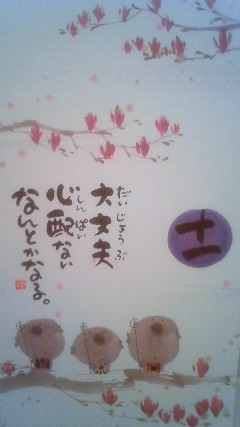 十一
大丈夫
だいじょうぶ
心配ない
しんぱい
なんとかなる。